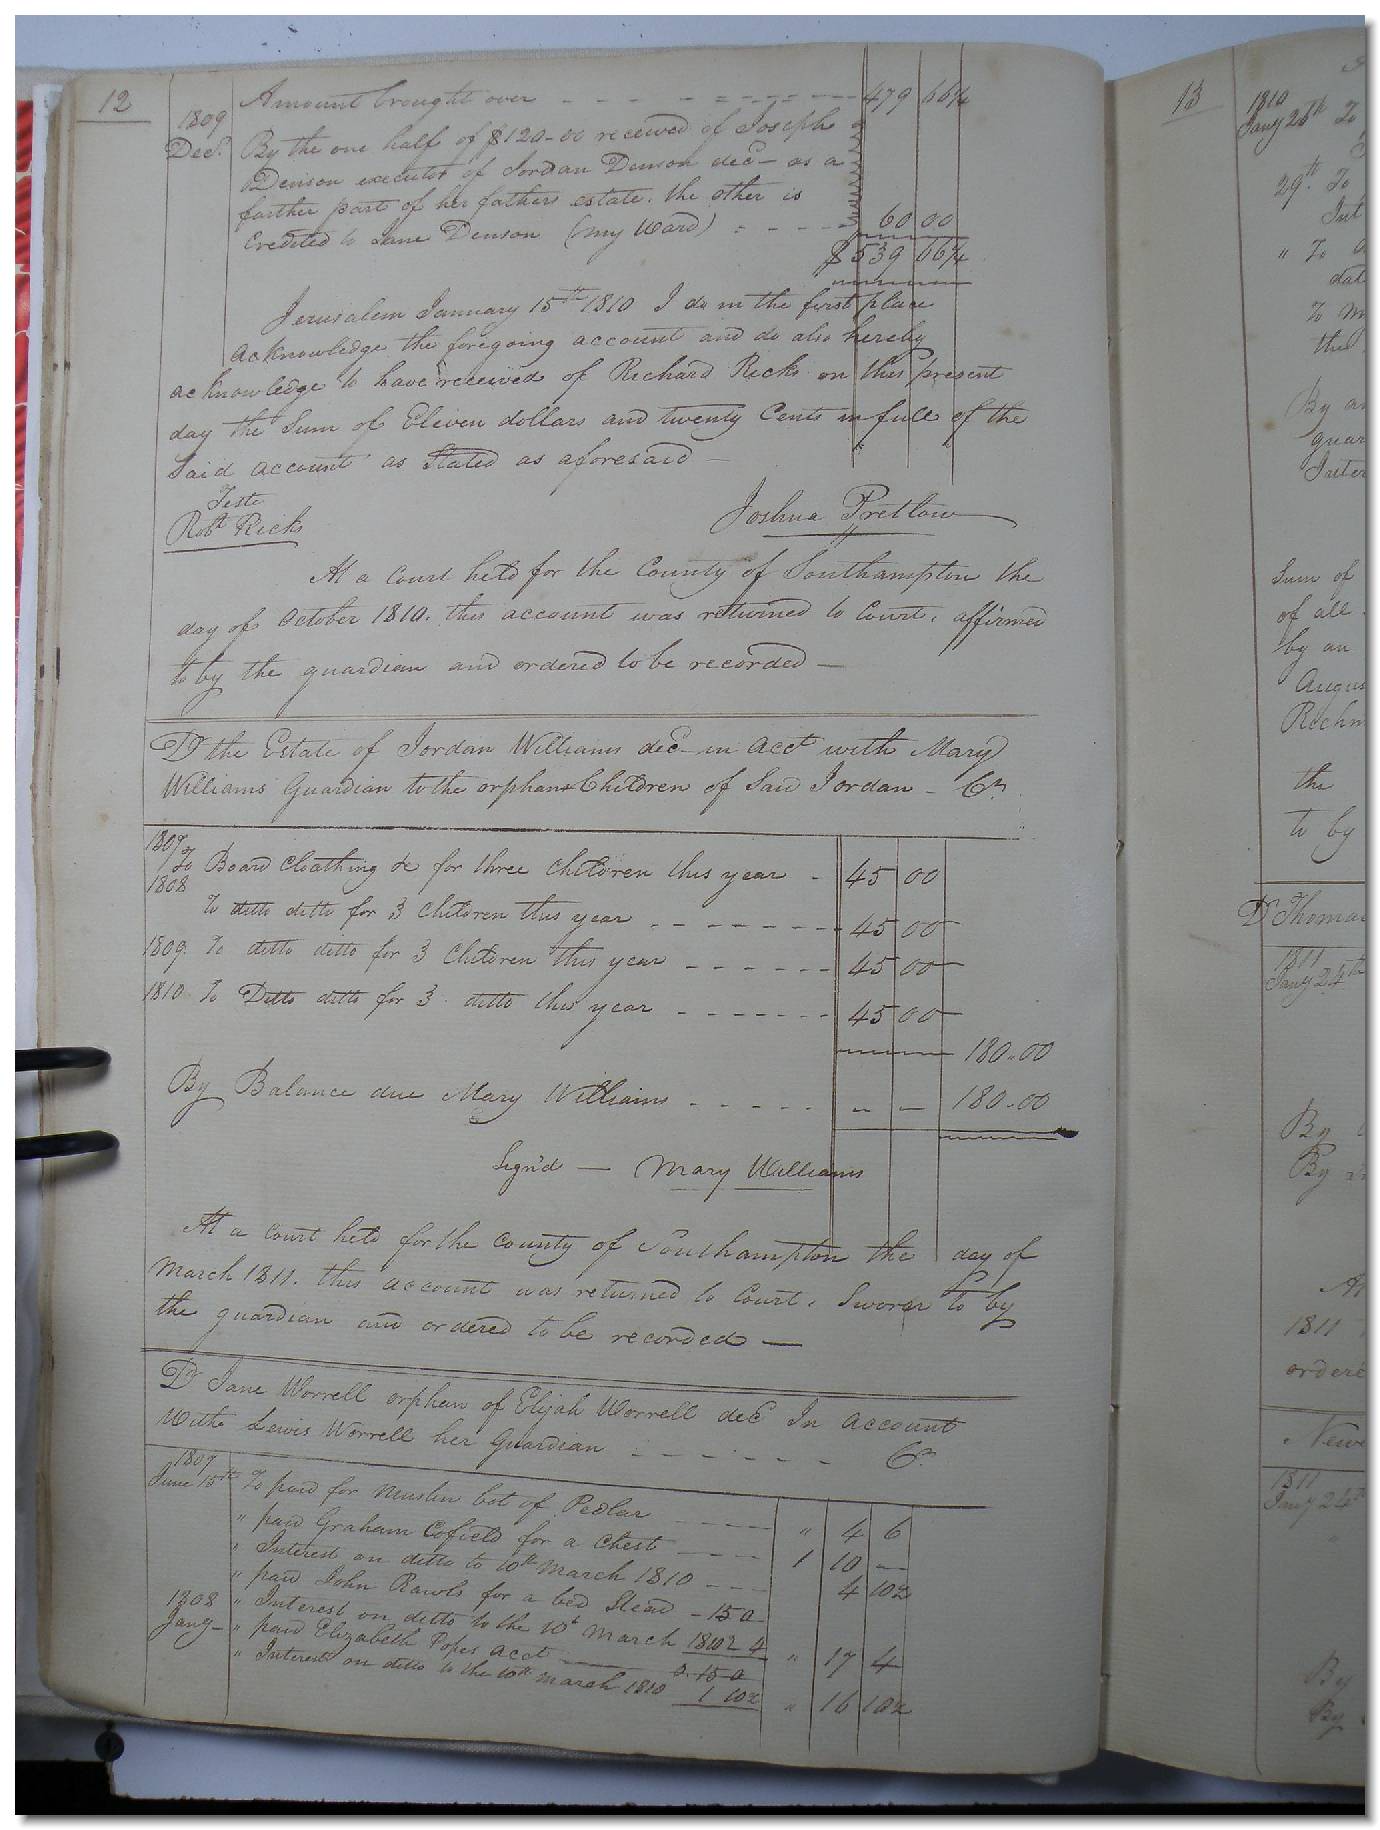 12
Amount brought over - - - - - - - - - 479 66¼
1809
Decr. By the one half of $120-00 received of Joseph
Denson executor of Jordan Denson decd - as a
further part of her fathers estate. the other is
Credited to Jane Denson (my Ward) - - - - 60 00
$539 66¼
Jerusalem January 15th 1810 I do in the first place
acknowledge the foregoing account and do also hereby
acknowledge to have received of Richard Ricks on this present
day the Sum of Eleven dollars and twenty Cents in full of the
Said account as Stated as aforesaid -
Teste
Robt Ricks
Joshua Pretlow
At a Court held for the County of Southampton the
day of October 1810. this account was returned to Court, affirmed
to by the guardian and ordered to be recorded -
Dr the Estate of Jordan Williams decd in Acct with Mary
Williams Guardian to the orphans Children of Said Jordan - Cr.
1807 To Board Cloathing &c for three children this year - 45 00
1808 To ditto ditto for 3 Children this year - - - - - - - 45 00
1809. To ditto ditto for 3 Children this year - - - - - - 45 00
1810 To Ditto ditto for 3 ditto this year - - - - - - - 45 00
180.00
By Balance due Mary Williams - - - - - - - 180.00
Sign'd - Mary Williams
At a Court held for the County of Southampton the day of
March 1811. this account was returned to Court, Sworn to by
the guardian and ordered to be recorded -
Dr Jane Worrell orphan of Elijah Worrell decd In Account
With Lewis Worrell her Guardian - - - - - - - Cr
1807
June 15th To paid for Muslin bot of Pedlar - - - - " 4 6
" paid Graham Cofield for a Chest - - - - 1 10 -
" Interest on ditto to 10th March 1810 - - - 4 10½
" paid John Rawls for a bed Stead - 15 0
1808 " Interest on ditto to the 10th March 1810 2 4 " 17 4
Jany - " paid Elizabeth Popes acct 15 0
" Interest on ditto to the 10th March 1810 1 10½ " 16 10½
13
1810
Jany 28th To
29th. To
Int
" To
dat
To M
the
By an
guar
Inter
Sum of
of all
by an
Augus
Richm
the
to by
Dr Thomas
1811
Jany 24th
By
By
At
1811
ordere
1811
Jany 24th
By
By